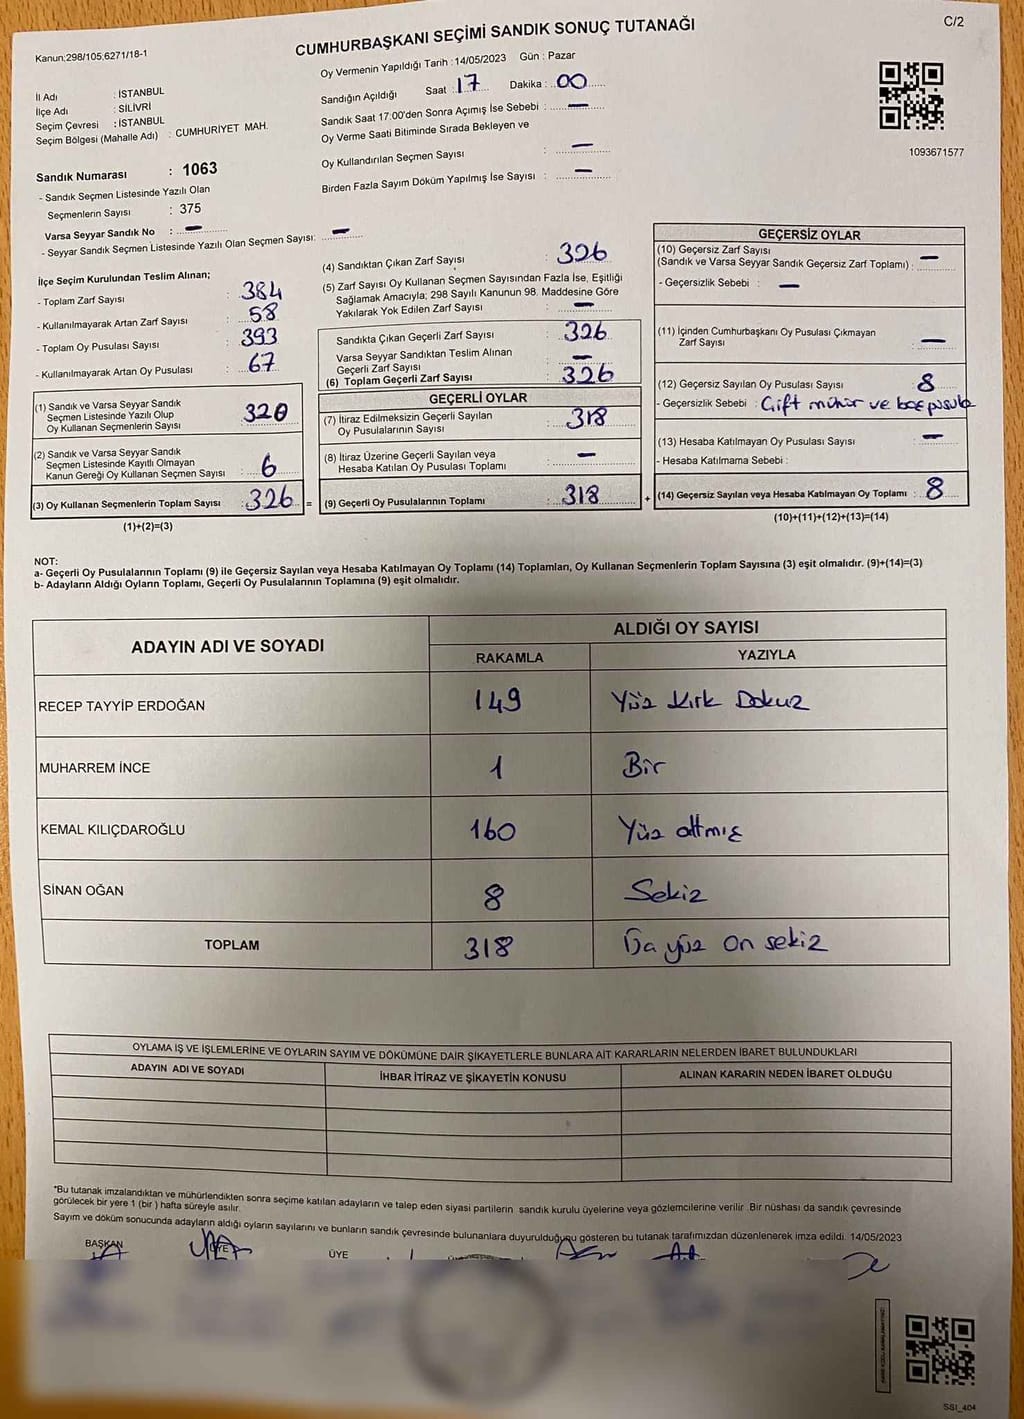 Kanun:298/105,6271/18-1
CUMHURBAŞKANI SEÇİMİ SANDIK SONUÇ TUTANAĞI
C/2
İl Adı : İSTANBUL
İlçe Adı : SİLİVRİ
Seçim Çevresi : İSTANBUL
Seçim Bölgesi (Mahalle Adı) : CUMHURİYET MAH.
Sandık Numarası : 1063
- Sandık Seçmen Listesinde Yazılı Olan
Seçmenlerin Sayısı : 375
Varsa Seyyar Sandık No : –
- Seyyar Sandık Seçmen Listesinde Yazılı Olan Seçmen Sayısı: –
Oy Vermenin Yapıldığı Tarih : 14/05/2023 Gün : Pazar
Sandığın Açıldığı Saat : 17 Dakika : 00
Sandık Saat 17:00'den Sonra Açımış İse Sebebi : –
Oy Verme Saati Bitiminde Sırada Bekleyen ve
Oy Kullandırılan Seçmen Sayısı : –
Birden Fazla Sayım Döküm Yapılmış İse Sayısı : –
1093671577
İlçe Seçim Kurulundan Teslim Alınan;
- Toplam Zarf Sayısı : 384
- Kullanılmayarak Artan Zarf Sayısı : 58
- Toplam Oy Pusulası Sayısı : 393
- Kullanılmayarak Artan Oy Pusulası : 67
(1) Sandık ve Varsa Seyyar Sandık
Seçmen Listesinde Yazılı Olup
Oy Kullanan Seçmenlerin Sayısı : 320
(2) Sandık ve Varsa Seyyar Sandık
Seçmen Listesinde Kayıtlı Olmayan
Kanun Gereği Oy Kullanan Seçmen Sayısı : 6
(3) Oy Kullanan Seçmenlerin Toplam Sayısı : 326 =
(1)+(2)=(3)
(4) Sandıktan Çıkan Zarf Sayısı : 326
(5) Zarf Sayısı Oy Kullanan Seçmen Sayısından Fazla İse, Eşitliği
Sağlamak Amacıyla; 298 Sayılı Kanunun 98. Maddesine Göre
Yakılarak Yok Edilen Zarf Sayısı : –
Sandıkta Çıkan Geçerli Zarf Sayısı : 326
Varsa Seyyar Sandıktan Teslim Alınan
Geçerli Zarf Sayısı : –
(6) Toplam Geçerli Zarf Sayısı : 326
GEÇERLİ OYLAR
(7) İtiraz Edilmeksizin Geçerli Sayılan
Oy Pusulalarının Sayısı : 318
(8) İtiraz Üzerine Geçerli Sayılan veya
Hesaba Katılan Oy Pusulası Toplamı : –
(9) Geçerli Oy Pusulalarının Toplamı : 318 +
GEÇERSİZ OYLAR
(10) Geçersiz Zarf Sayısı
(Sandık ve Varsa Seyyar Sandık Geçersiz Zarf Toplamı) : –
- Geçersizlik Sebebi : –
(11) İçinden Cumhurbaşkanı Oy Pusulası Çıkmayan
Zarf Sayısı : –
(12) Geçersiz Sayılan Oy Pusulası Sayısı : 8
- Geçersizlik Sebebi : Çift mühür ve boş pusula
(13) Hesaba Katılmayan Oy Pusulası Sayısı : –
- Hesaba Katılmama Sebebi :
(14) Geçersiz Sayılan veya Hesaba Katılmayan Oy Toplamı : 8
(10)+(11)+(12)+(13)=(14)
NOT:
a- Geçerli Oy Pusulalarının Toplamı (9) ile Geçersiz Sayılan veya Hesaba Katılmayan Oy Toplamı (14) Toplamları, Oy Kullanan Seçmenlerin Toplam Sayısına (3) eşit olmalıdır. (9)+(14)=(3)
b- Adayların Aldığı Oyların Toplamı, Geçerli Oy Pusulalarının Toplamına (9) eşit olmalıdır.
ADAYIN ADI VE SOYADI
ALDIĞI OY SAYISI
RAKAMLA YAZIYLA
RECEP TAYYİP ERDOĞAN 149 Yüz Kırk Dokuz
MUHARREM İNCE 1 Bir
KEMAL KILIÇDAROĞLU 160 Yüz altmış
SİNAN OĞAN 8 Sekiz
TOPLAM 318 Üç yüz on sekiz
OYLAMA İŞ VE İŞLEMLERİNE VE OYLARIN SAYIM VE DÖKÜMÜNE DAİR ŞİKAYETLERLE BUNLARA AİT KARARLARIN NELERDEN İBARET BULUNDUKLARI
ADAYIN ADI VE SOYADI İHBAR İTİRAZ VE ŞİKAYETİN KONUSU ALINAN KARARIN NEDEN İBARET OLDUĞU
*Bu tutanak imzalandıktan ve mühürlendikten sonra seçime katılan adayların ve talep eden siyasi partilerin sandık kurulu üyelerine veya gözlemcilerine verilir. Bir nüshası da sandık çevresinde
görülecek bir yere 1 (bir) hafta süreyle asılır.
Sayım ve döküm sonucunda adayların aldığı oyların sayılarını ve bunların sandık çevresinde bulunanlara duyurulduğunu gösteren bu tutanak tarafımızdan düzenlenerek imza edildi. 14/05/2023
BAŞKAN ÜYE ÜYE
SSI_404